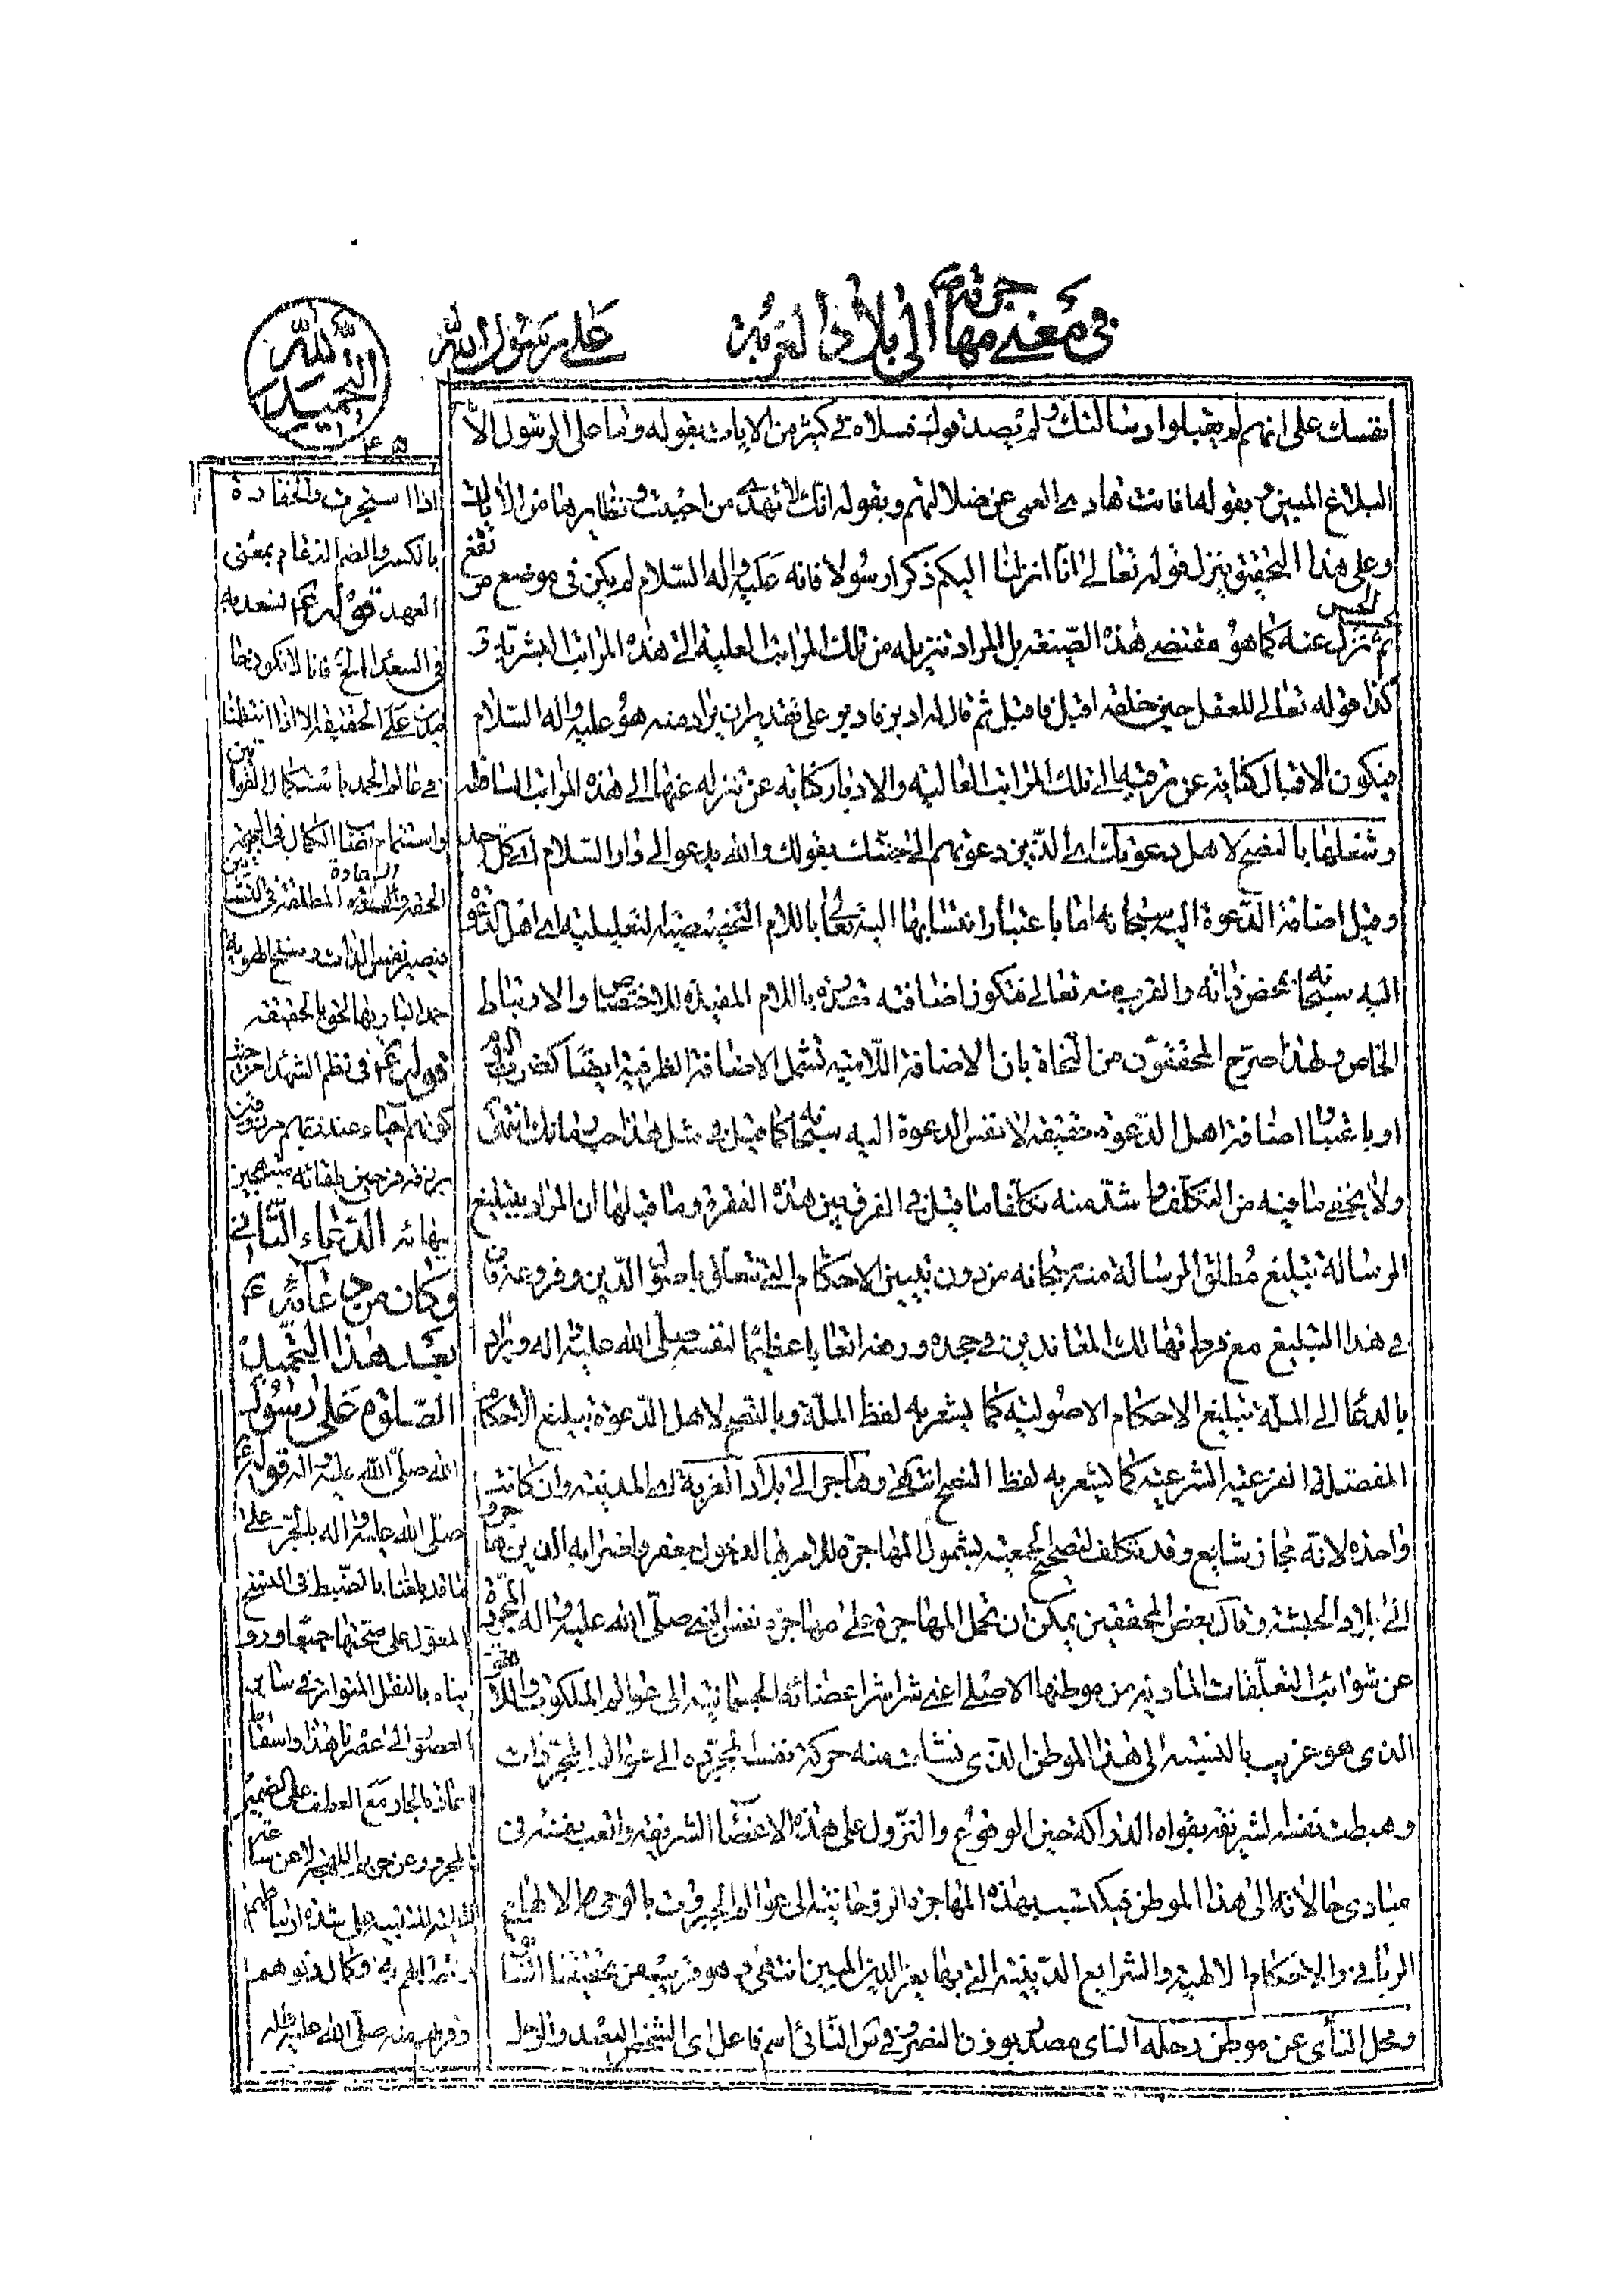 في معنى مهاجرته إلى بلاد الغربة
على رسول الله
التحميد لله
نفسك على انهم لم يقبلوا رسالتك ولم يصدقوك فسلاه في كثير من الايات بقوله وما على الرسول الا
البلاغ المبين وبقوله ما انت بهادى العمى عن ضلالتهم وبقوله انك لا تهدى من احببت ونظايرها من الايات
وعلى هذا التحقيق ينزل قوله تعالى انا انزلنا اليكم ذكرا رسولا فانه عليه واله السلام لم يكن في موضع مرتفع
ثم تنزل عنه كما هو مقتضى هذه الصيغة بل المراد تنزيله من تلك المراتب العلية الى هذه المراتب البشرية و
كذا قوله تعالى للعقل حين خلقه اقبل فاقبل ثم قال له ادبر فادبر على تقدير ان يراد منه هو عليه واله السلام
فيكون الاقبال كناية عن ترقيه الى تلك المراتب العالية والادبار كناية عن تنزله عنها الى هذه المراتب السافلة
وشغلها بالنصح لاهل دعوتك اى الذين دعوتهم الى جنتك بقولك والله يدعو الى دار السلام اى كل احد
وقيل اضافة الدعوة اليه سبحانه اما باعتبار انتسابها اليه تعالى باللام التخصيصية لتعليلية اى اهل الدعوة
اليه سبحانه بمحض ذاته والقرب منه تعالى فتكون اضافته مقدرة باللام المفيدة للاختصاص والارتباط
الخاص ولهذا صرح المحققون من النحاة بان الاضافة اللامية تشمل الاضافة الظرفية ايضا
او باعتبار اضافة اهل الدعوة حقيقة لا نفس الدعوة اليه سبحانه كما قيل في مثل هذا حب رمانك انتهى
ولا يخفى ما فيه من التكلف واشد منه تكلفا ما قيل في الفرق بين هذه الفقرة وما قبلها ان المراد بتبليغ
الرسالة تبليغ مطلق الرسالة منه سبحانه من دون تبيين الاحكام التي تتعلق باصول الدين وفروعه فان
في هذا التبليغ مع فرط انهماك المعاندين في جحده ورده اتعابا عظيما لنفسه صلى الله عليه واله ويراد
بالدعاء الى الملة تبليغ الاحكام الاصولية كما يشعر به لفظ الملة وبالنصح لاهل الدعوة تبليغ الاحكام
المفصلة الفرعية الشرعية كما يشعر به لفظ النصح انتهى وهاجر الى بلاد الغربة اى المدينة وان كانت
واحدة لانه مجاز شايع وقد تكلف لتصحيح الجمعية بشمول المهاجرة للامر بها لدخول جعفر واضرابه الذين هاجروا
الى بلاد الحبشة وقال بعض المحققين يمكن ان تحمل المهاجرة على مهاجرة نفس النبي صلى الله عليه واله المجردة
عن شوائب التعلقات المادية من موطنها الاصلى اعنى شراشر اعضائه الجسمانية الى عوالم الملكوت
الذي هو غريب بالنسبة الى هذا الموطن الذي نشات منه حركة نفسه المجردة الى عوالم المجردات
وهبطت نفسه الشريفة بقواه الدراكة حين الوقوع والنزول على هذه الاعضاء الشريفة واتعب نفسه في
مبادى حالاته الى هذا الموطن فيكتسب بهذه المهاجرة الروحانية الى عوالم الجبروت بالوحى والالهام
الربانى والاحكام الالهية والشرايع الدينية التي بها يعز الدين المبين انتهى وهو قريب من تحقيقنا السابق
ومحل النأى عن موطن رحله النأى مصدر بوزن النصر وفي س النائى اسم فاعل اى الشخص البعيد والرحل
اذا استجرت والخفارة
بالكسر والضم الذمام بمعنى
العهد قوله ع نسعد به
في السعداء الخ فانا لا نكون حا
مدين على الحقيقة الا اذا انتظمنا
في عالم الحمد باستكمال القوانين
واستتمام نصاب الكمال في
فيصير نفس الذات وسنخ الهوية
حمدا لباريها الحق بالحقيقة
قوله ع في نظم الشهداء من حيث
كونهم احياء عند ربهم مرزوقين
برزقه فرحين بلقائه مبتهجين
ببهائه الدعاء الثاني
وكان من دعائه ع
بعد هذا التحميد
الصلوة على رسول
الله صلى الله عليه واله قوله ع
صلى الله عليه واله بالجر على
ما قد بلغنا بالضبط في النسخ
المعول على صحتها جميعا ورو
يناه بالنقل المتواتر في ساير
العصور الى عصرنا هذا واسقاط
اعادة الجار مع العطف على الضمير
المجرور
وقربهم منه صلى الله عليه واله